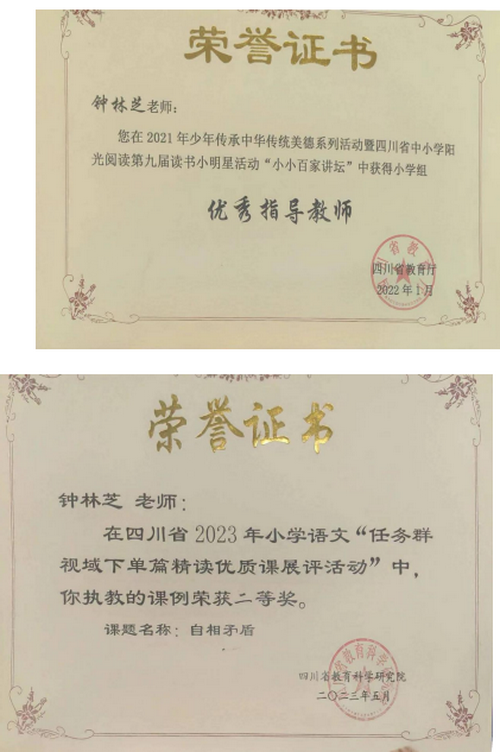 荣誉证书
钟林芝老师：
您在2021年少年传承中华传统美德系列活动暨四川省中小学阳
光阅读第九届读书小明星活动“小小百家讲坛”中获得小学组
优秀指导教师
四川省教育厅
2022年1月
荣誉证书
钟林芝 老师：
在四川省2023年小学语文“任务群
视域下单篇精读优质课展评活动”中，
你执教的课例荣获二等奖。
课题名称：自相矛盾
四川省教育科学研究院
二〇二三年五月